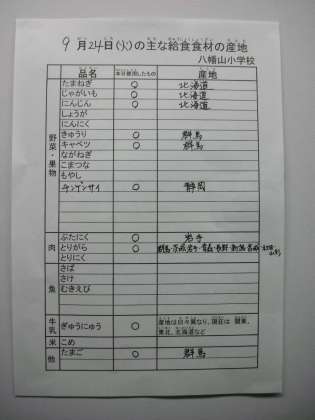 9月24日(火)の主な給食食材の産地
八幡山小学校
品名 本日使用したもの 産地
野菜・果物
たまねぎ ○ 北海道
じゃがいも ○ 北海道
にんじん ○ 北海道
しょうが
にんにく
きゅうり ○ 群馬
キャベツ ○ 群馬
ながねぎ
こまつな
もやし
チンゲンサイ ○ 静岡
肉
ぶたにく ○ 岩手
とりがら ○ 群馬・茨城・岩手・青森・長野・新潟・宮城・
とりにく
魚
さば
さけ
むきえび
牛乳
ぎゅうにゅう ○ 産地は日々異なり、現在は 関東、
東北、北海道など
米 こめ
他 たまご ○ 群馬